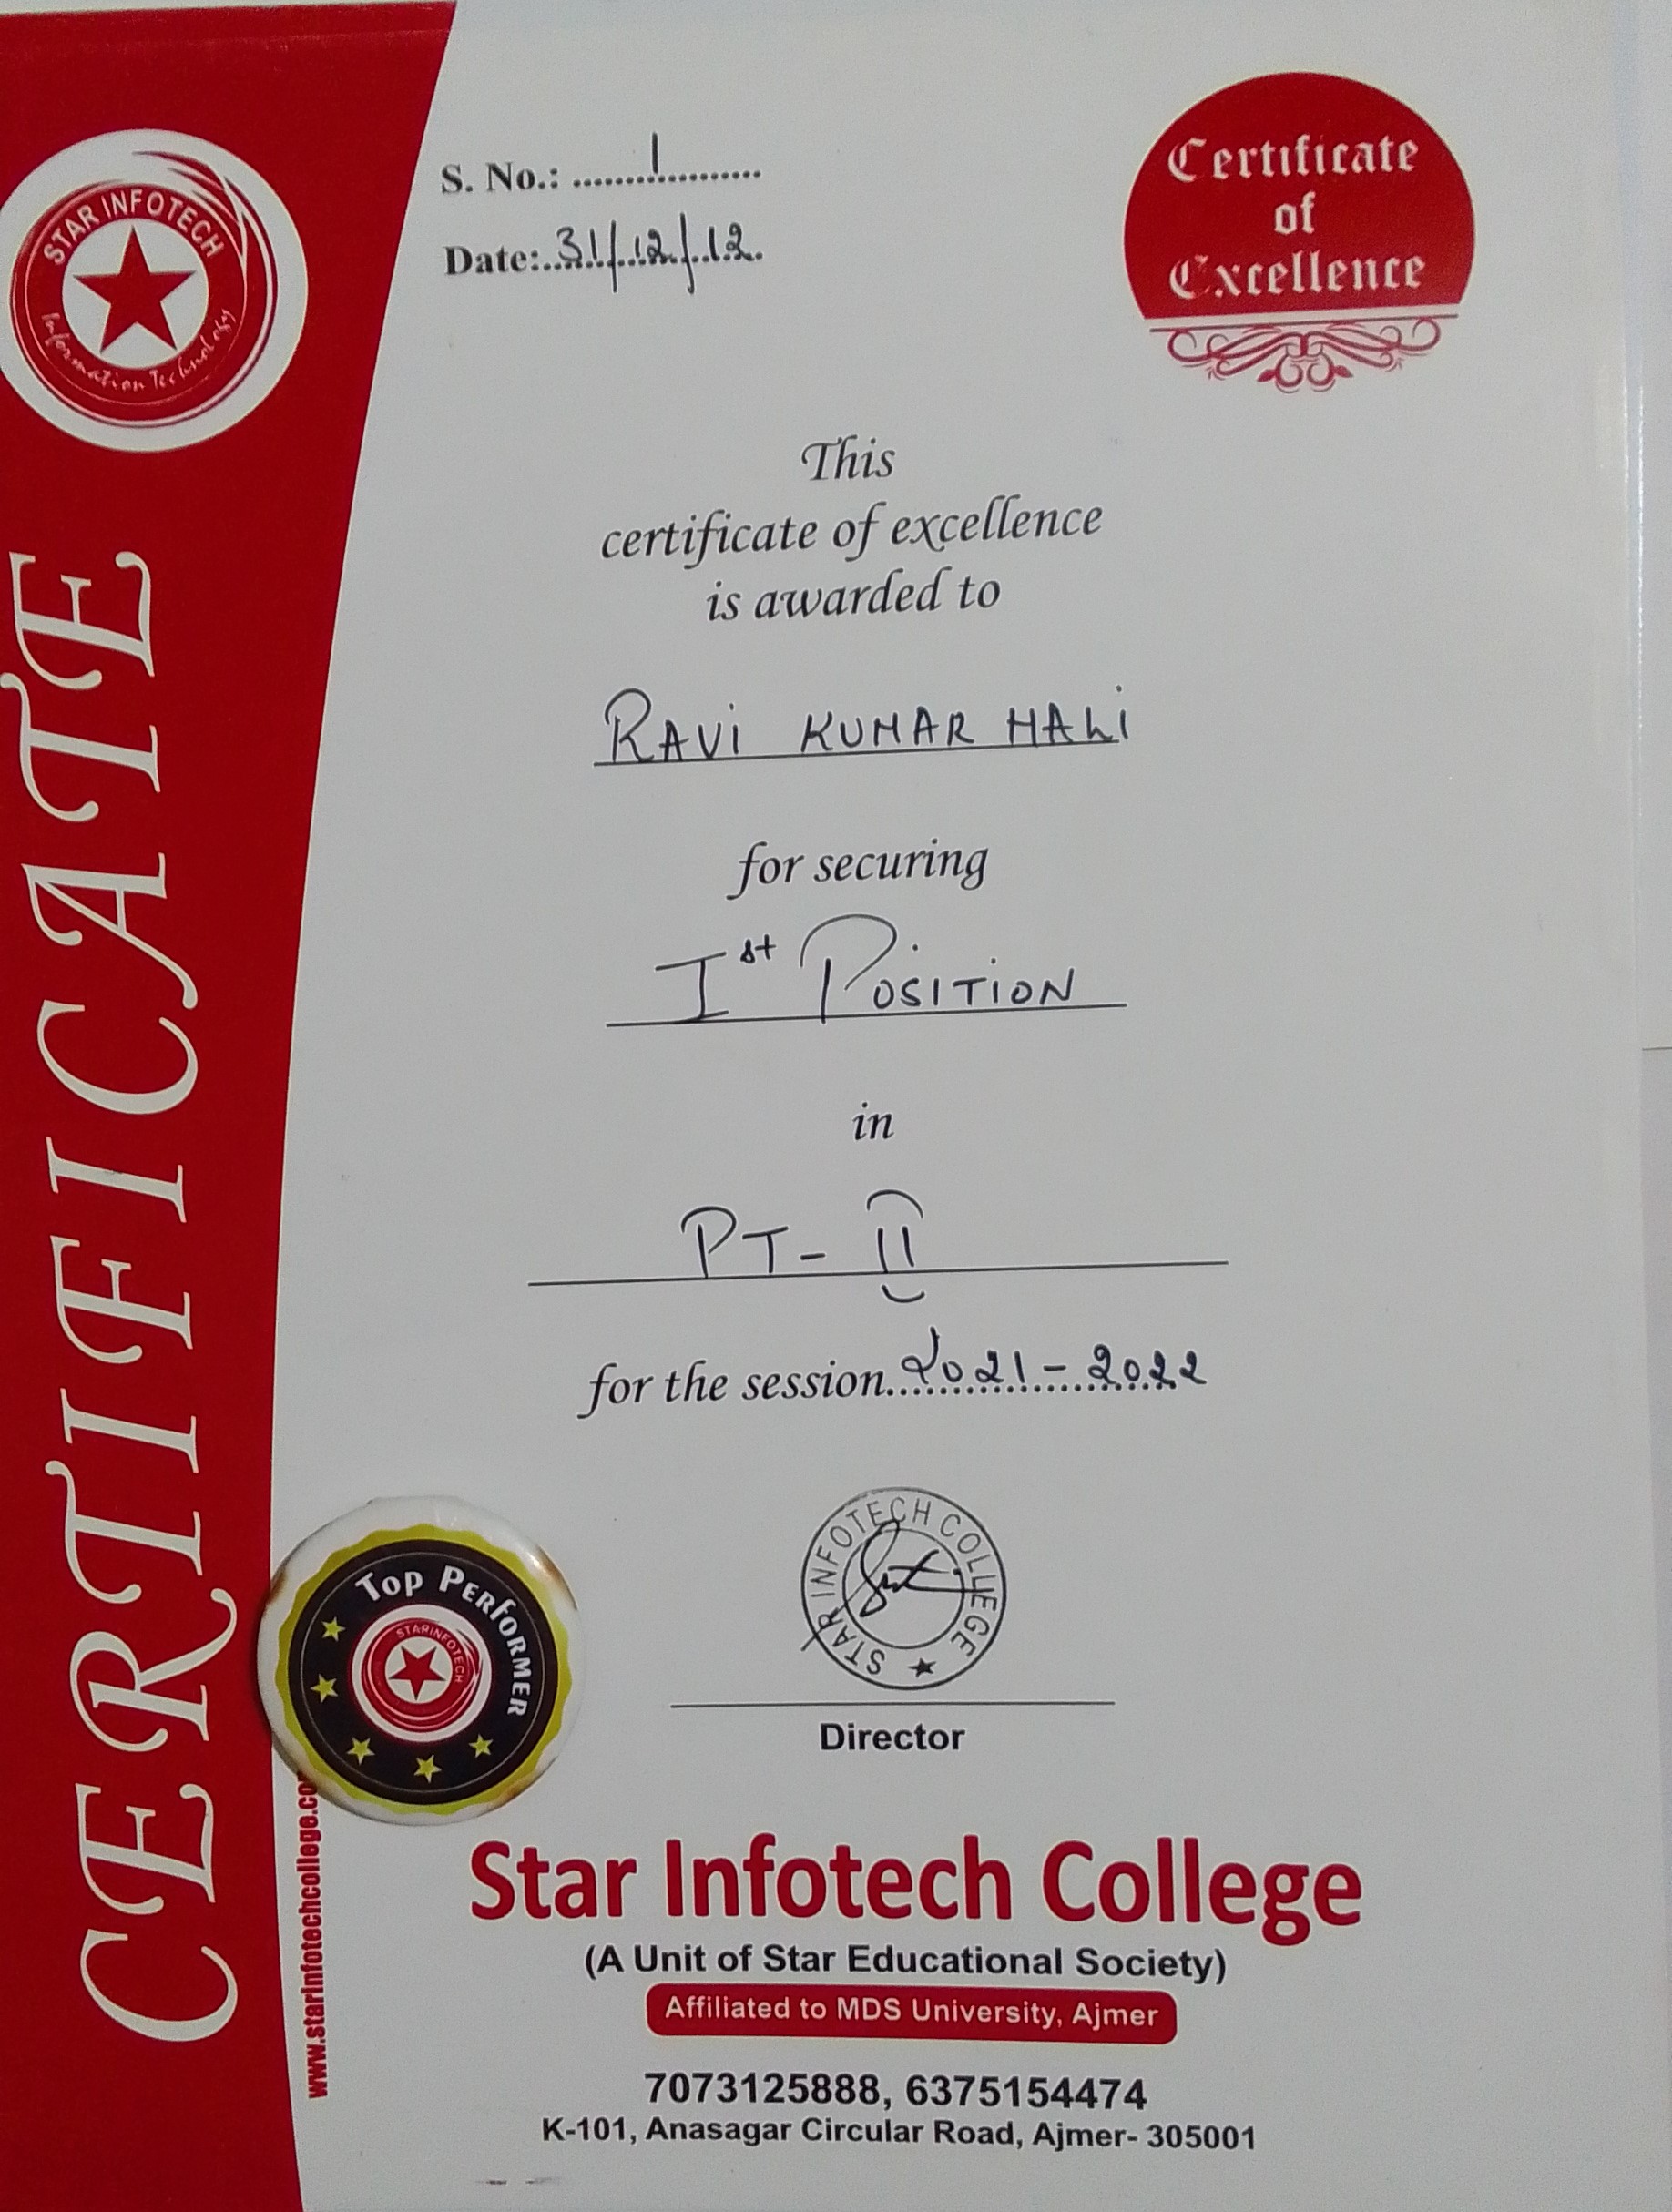 STAR INFOTECH
Information Technology
S. No.: ........1..........
Date:..31/12/12.
Certificate
of
Excellence
This
certificate of excellence
is awarded to
RAVI KUMAR MALI
for securing
Ist POSITION
in
PT- II
for the session..2021-2022
STAR INFOTECH COLLEGE
Director
TOP PERFORMER
STARINFOTECH
CERTIFICATE
www.starinfotechcollege.co
Star Infotech College
(A Unit of Star Educational Society)
Affiliated to MDS University, Ajmer
7073125888, 6375154474
K-101, Anasagar Circular Road, Ajmer- 305001